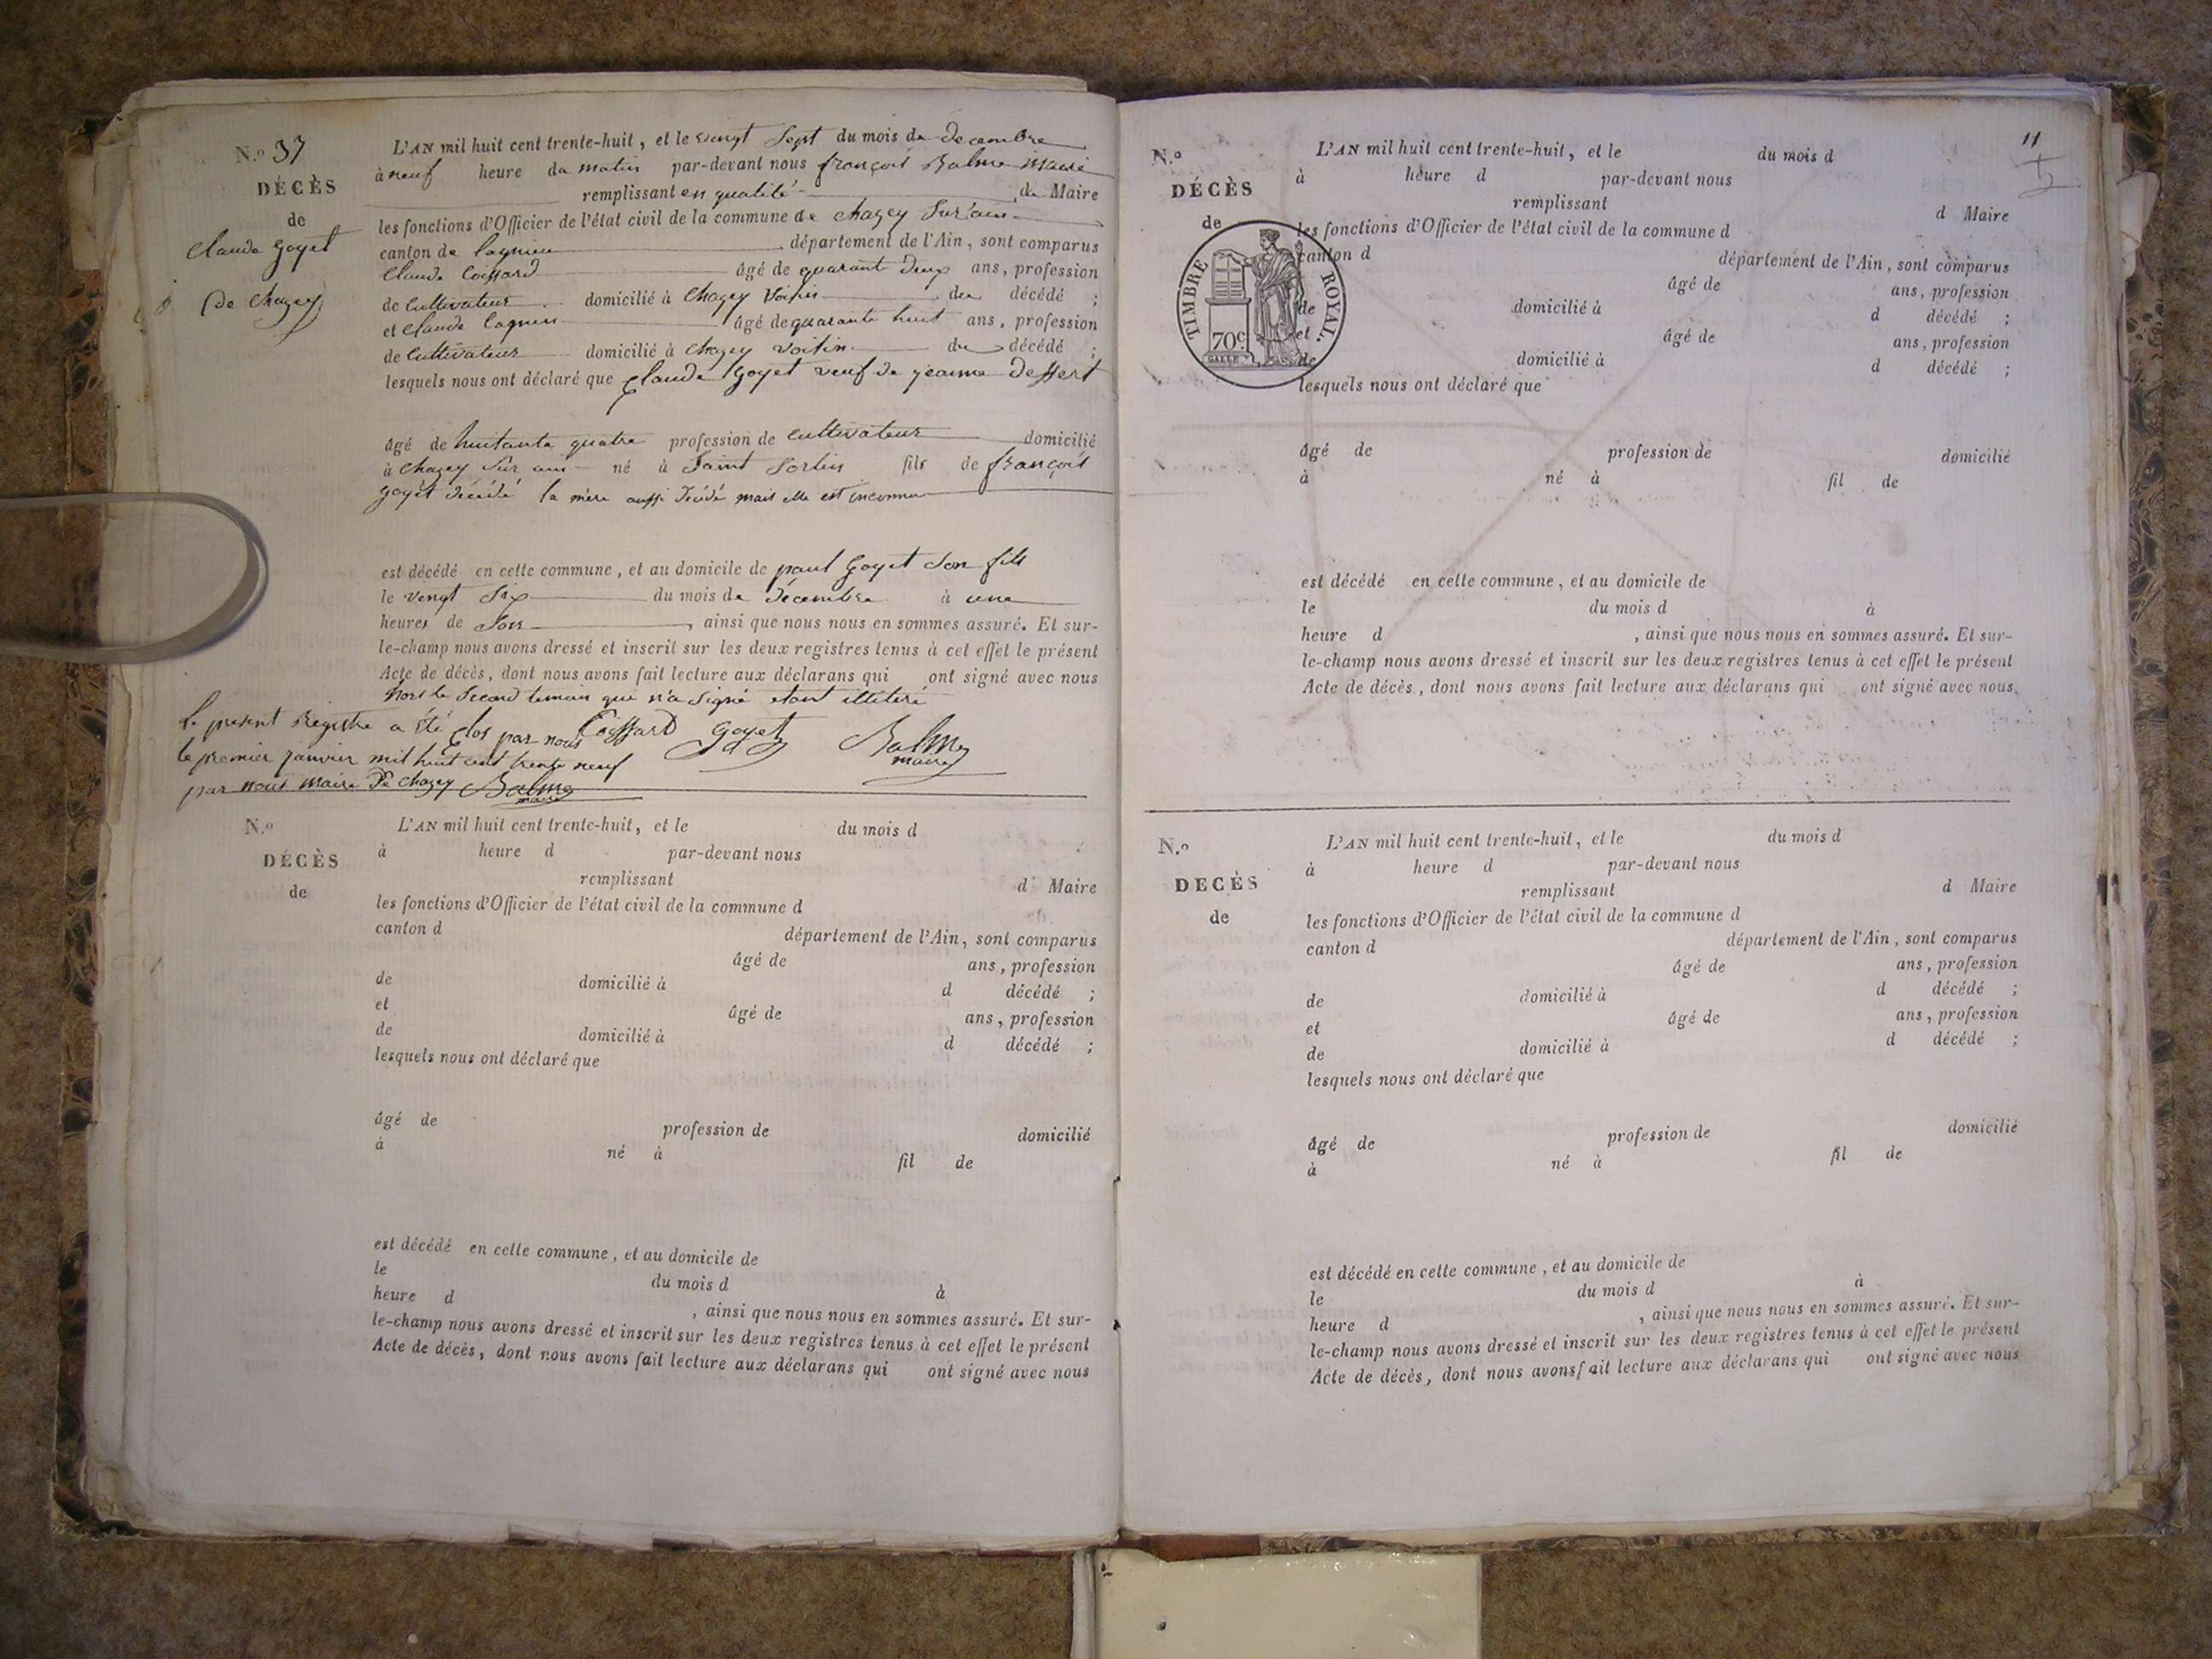 N.º 37
DÉCÈS
de
Claude Goyet
(de Chazey)
L'AN mil huit cent trente-huit, et le vingt Sept du mois de decembre
à neuf heure du matin par-devant nous françois Balme Maire
remplissant en qualité de Maire
les fonctions d'Officier de l'état civil de la commune de Chazey Sur ain
canton de lagnieu département de l'Ain, sont comparus
Claude Coffard âgé de quarant deux ans, profession
de Cultivateur domicilié à Chazey Voisin du décédé ;
et Claude Cagnin âgé de quarante huit ans, profession
de Cultivateur domicilié à Chazey Voisin du décédé ;
lesquels nous ont déclaré que Claude Goyet veuf de jeanne
âgé de huitante quatre profession de Cultivateur domicilié
à Chazey Sur ain né à Saint Sorlin fils de françois
goyet décédé la mère aussi décédé mais elle est inconnu
est décédé en cette commune, et au domicile de paul Goyet Son fils
le vengt Six du mois de décembre à une
heures de Soir, ainsi que nous nous en sommes assuré. Et sur-
le-champ nous avons dressé et inscrit sur les deux registres tenus à cet effet le présent
Acte de décès, dont nous avons fait lecture aux déclarans qui ont signé avec nous
hors le Second temoin qui n'a Signé etant illiteré
Coffard Goyet Balme
maire
Le present Registre a été Clos par nous
le premier janvier mil huit cent trente neuf
par nous maire De Chazey Balme
maire
N.º
DÉCÈS
de
L'AN mil huit cent trente-huit, et le du mois d
à heure d par-devant nous
remplissant d Maire
les fonctions d'Officier de l'état civil de la commune d
canton d département de l'Ain, sont comparus
âgé de ans, profession
de domicilié à d décédé ;
et âgé de ans, profession
de domicilié à d décédé ;
lesquels nous ont déclaré que
âgé de profession de domicilié
à né à fil de
est décédé en cette commune, et au domicile de
le du mois d à
heure d , ainsi que nous nous en sommes assuré. Et sur-
le-champ nous avons dressé et inscrit sur les deux registres tenus à cet effet le présent
Acte de décès, dont nous avons fait lecture aux déclarans qui ont signé avec nous
11
N.º
DÉCÈS
de
TIMBRE ROYAL.
70c.
GALLE
L'AN mil huit cent trente-huit, et le du mois d
à heure d par-devant nous
remplissant d Maire
les fonctions d'Officier de l'état civil de la commune d
canton d département de l'Ain, sont comparus
âgé de ans, profession
de domicilié à d décédé ;
et âgé de ans, profession
de domicilié à d décédé ;
lesquels nous ont déclaré que
âgé de profession de domicilié
à né à fil de
est décédé en cette commune, et au domicile de
le du mois d à
heure d , ainsi que nous nous en sommes assuré. Et sur-
le-champ nous avons dressé et inscrit sur les deux registres tenus à cet effet le présent
Acte de décès, dont nous avons fait lecture aux déclarans qui ont signé avec nous.
N.º
DECÈS
de
L'AN mil huit cent trente-huit, et le du mois d
à heure d par-devant nous
remplissant d Maire
les fonctions d'Officier de l'état civil de la commune d
canton d département de l'Ain, sont comparus
âgé de ans, profession
de domicilié à d décédé ;
et âgé de ans, profession
de domicilié à d décédé ;
lesquels nous ont déclaré que
âgé de profession de domicilié
à né à fil de
est décédé en cette commune, et au domicile de
le du mois d à
heure d , ainsi que nous nous en sommes assuré. Et sur-
le-champ nous avons dressé et inscrit sur les deux registres tenus à cet effet le présent
Acte de décès, dont nous avons fait lecture aux déclarans qui ont signé avec nous